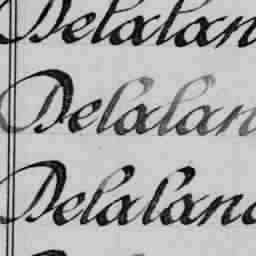 Delalan
Delalan
Delaland